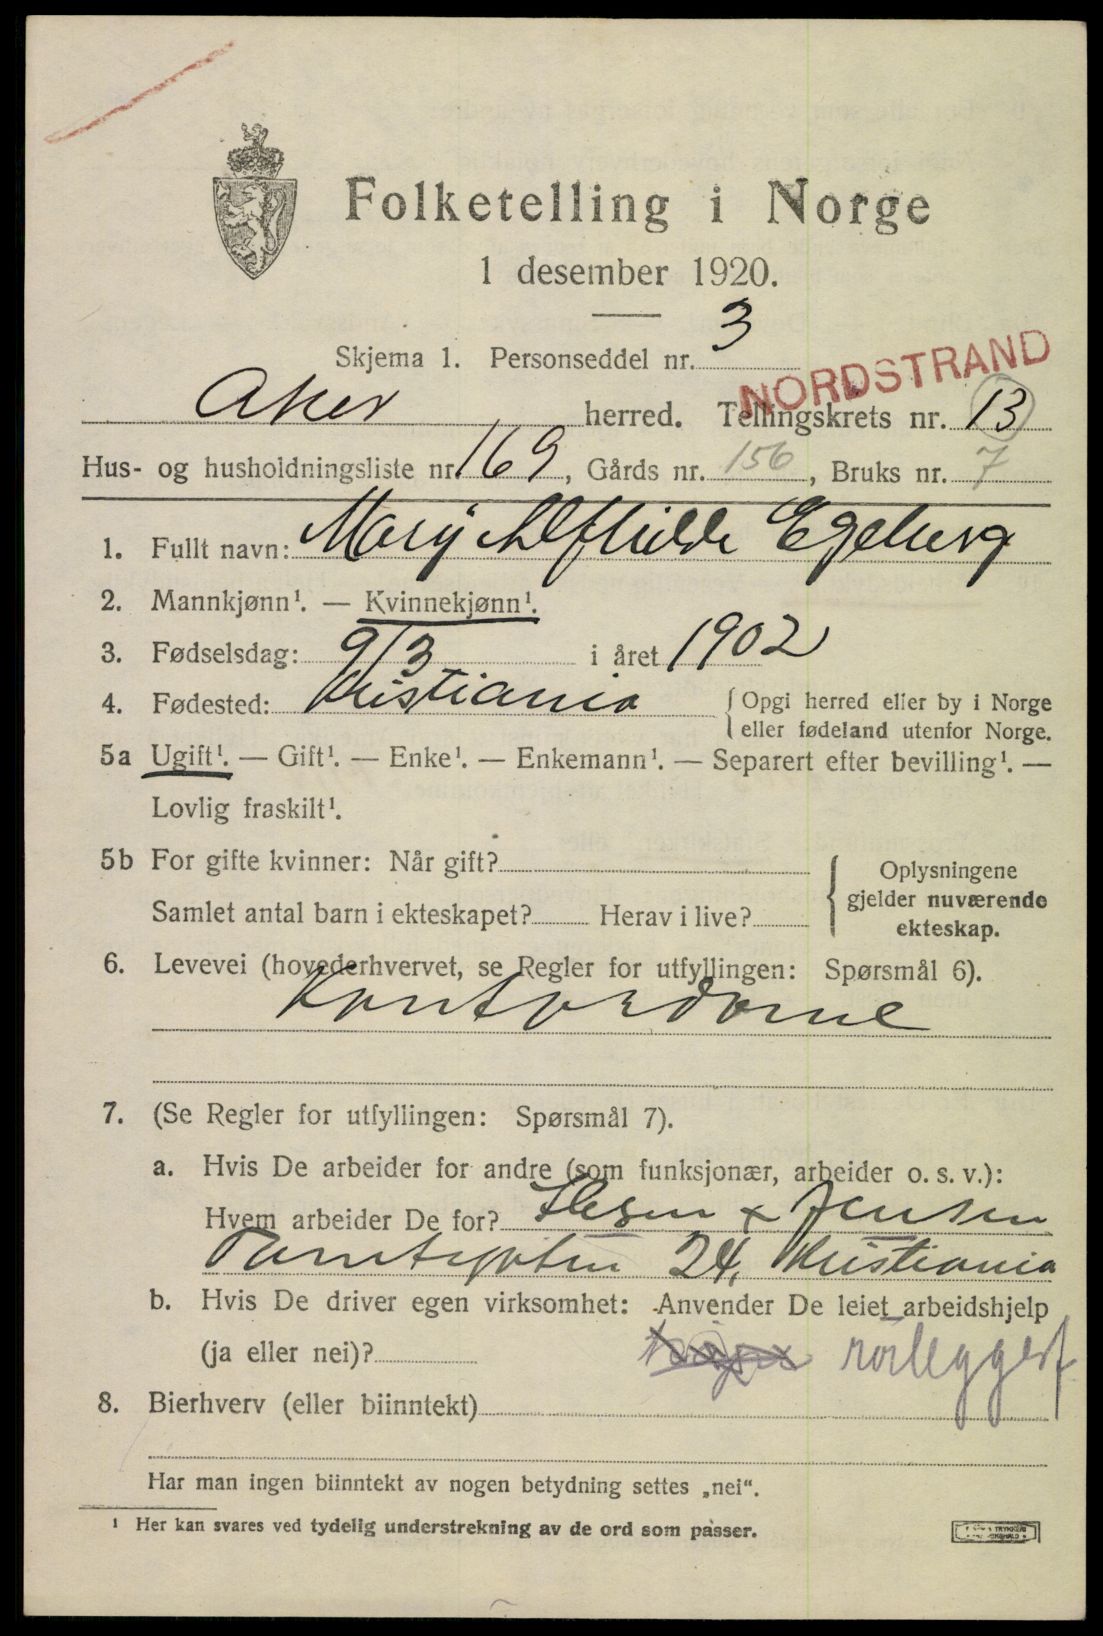 Folketelling i Norge
1 desember 1920.
Skjema 1. Personseddel nr. 3
NORDSTRAND
Aker herred. Tellingskrets nr. 13
Hus- og husholdningsliste nr. 169, Gårds nr. 156, Bruks nr. 7
1. Fullt navn: Mary Alfhilde Egeberg
2. Mannkjønn¹. — Kvinnekjønn¹.
3. Fødselsdag: 9/3 i året 1902
4. Fødested: Kristiania { Opgi herred eller by i Norge
eller fødeland utenfor Norge.
5a Ugift¹. — Gift¹. — Enke¹. — Enkemann¹. — Separert efter bevilling¹. —
Lovlig fraskilt¹.
5b For gifte kvinner: Når gift?
Samlet antal barn i ekteskapet? Herav i live?
Oplysningene
gjelder nuværende
ekteskap.
6. Levevei (hovederhvervet, se Regler for utfyllingen: Spørsmål 6).
Kontordame
7. (Se Regler for utfyllingen: Spørsmål 7).
a. Hvis De arbeider for andre (som funksjonær, arbeider o. s. v.):
Hvem arbeider De for? & Jensen
24, Kristiania
b. Hvis De driver egen virksomhet: Anvender De leiet arbeidshjelp
(ja eller nei)? rørleggerf
8. Bierhverv (eller biinntekt)
Har man ingen biinntekt av nogen betydning settes „nei".
¹ Her kan svares ved tydelig understrekning av de ord som passer.